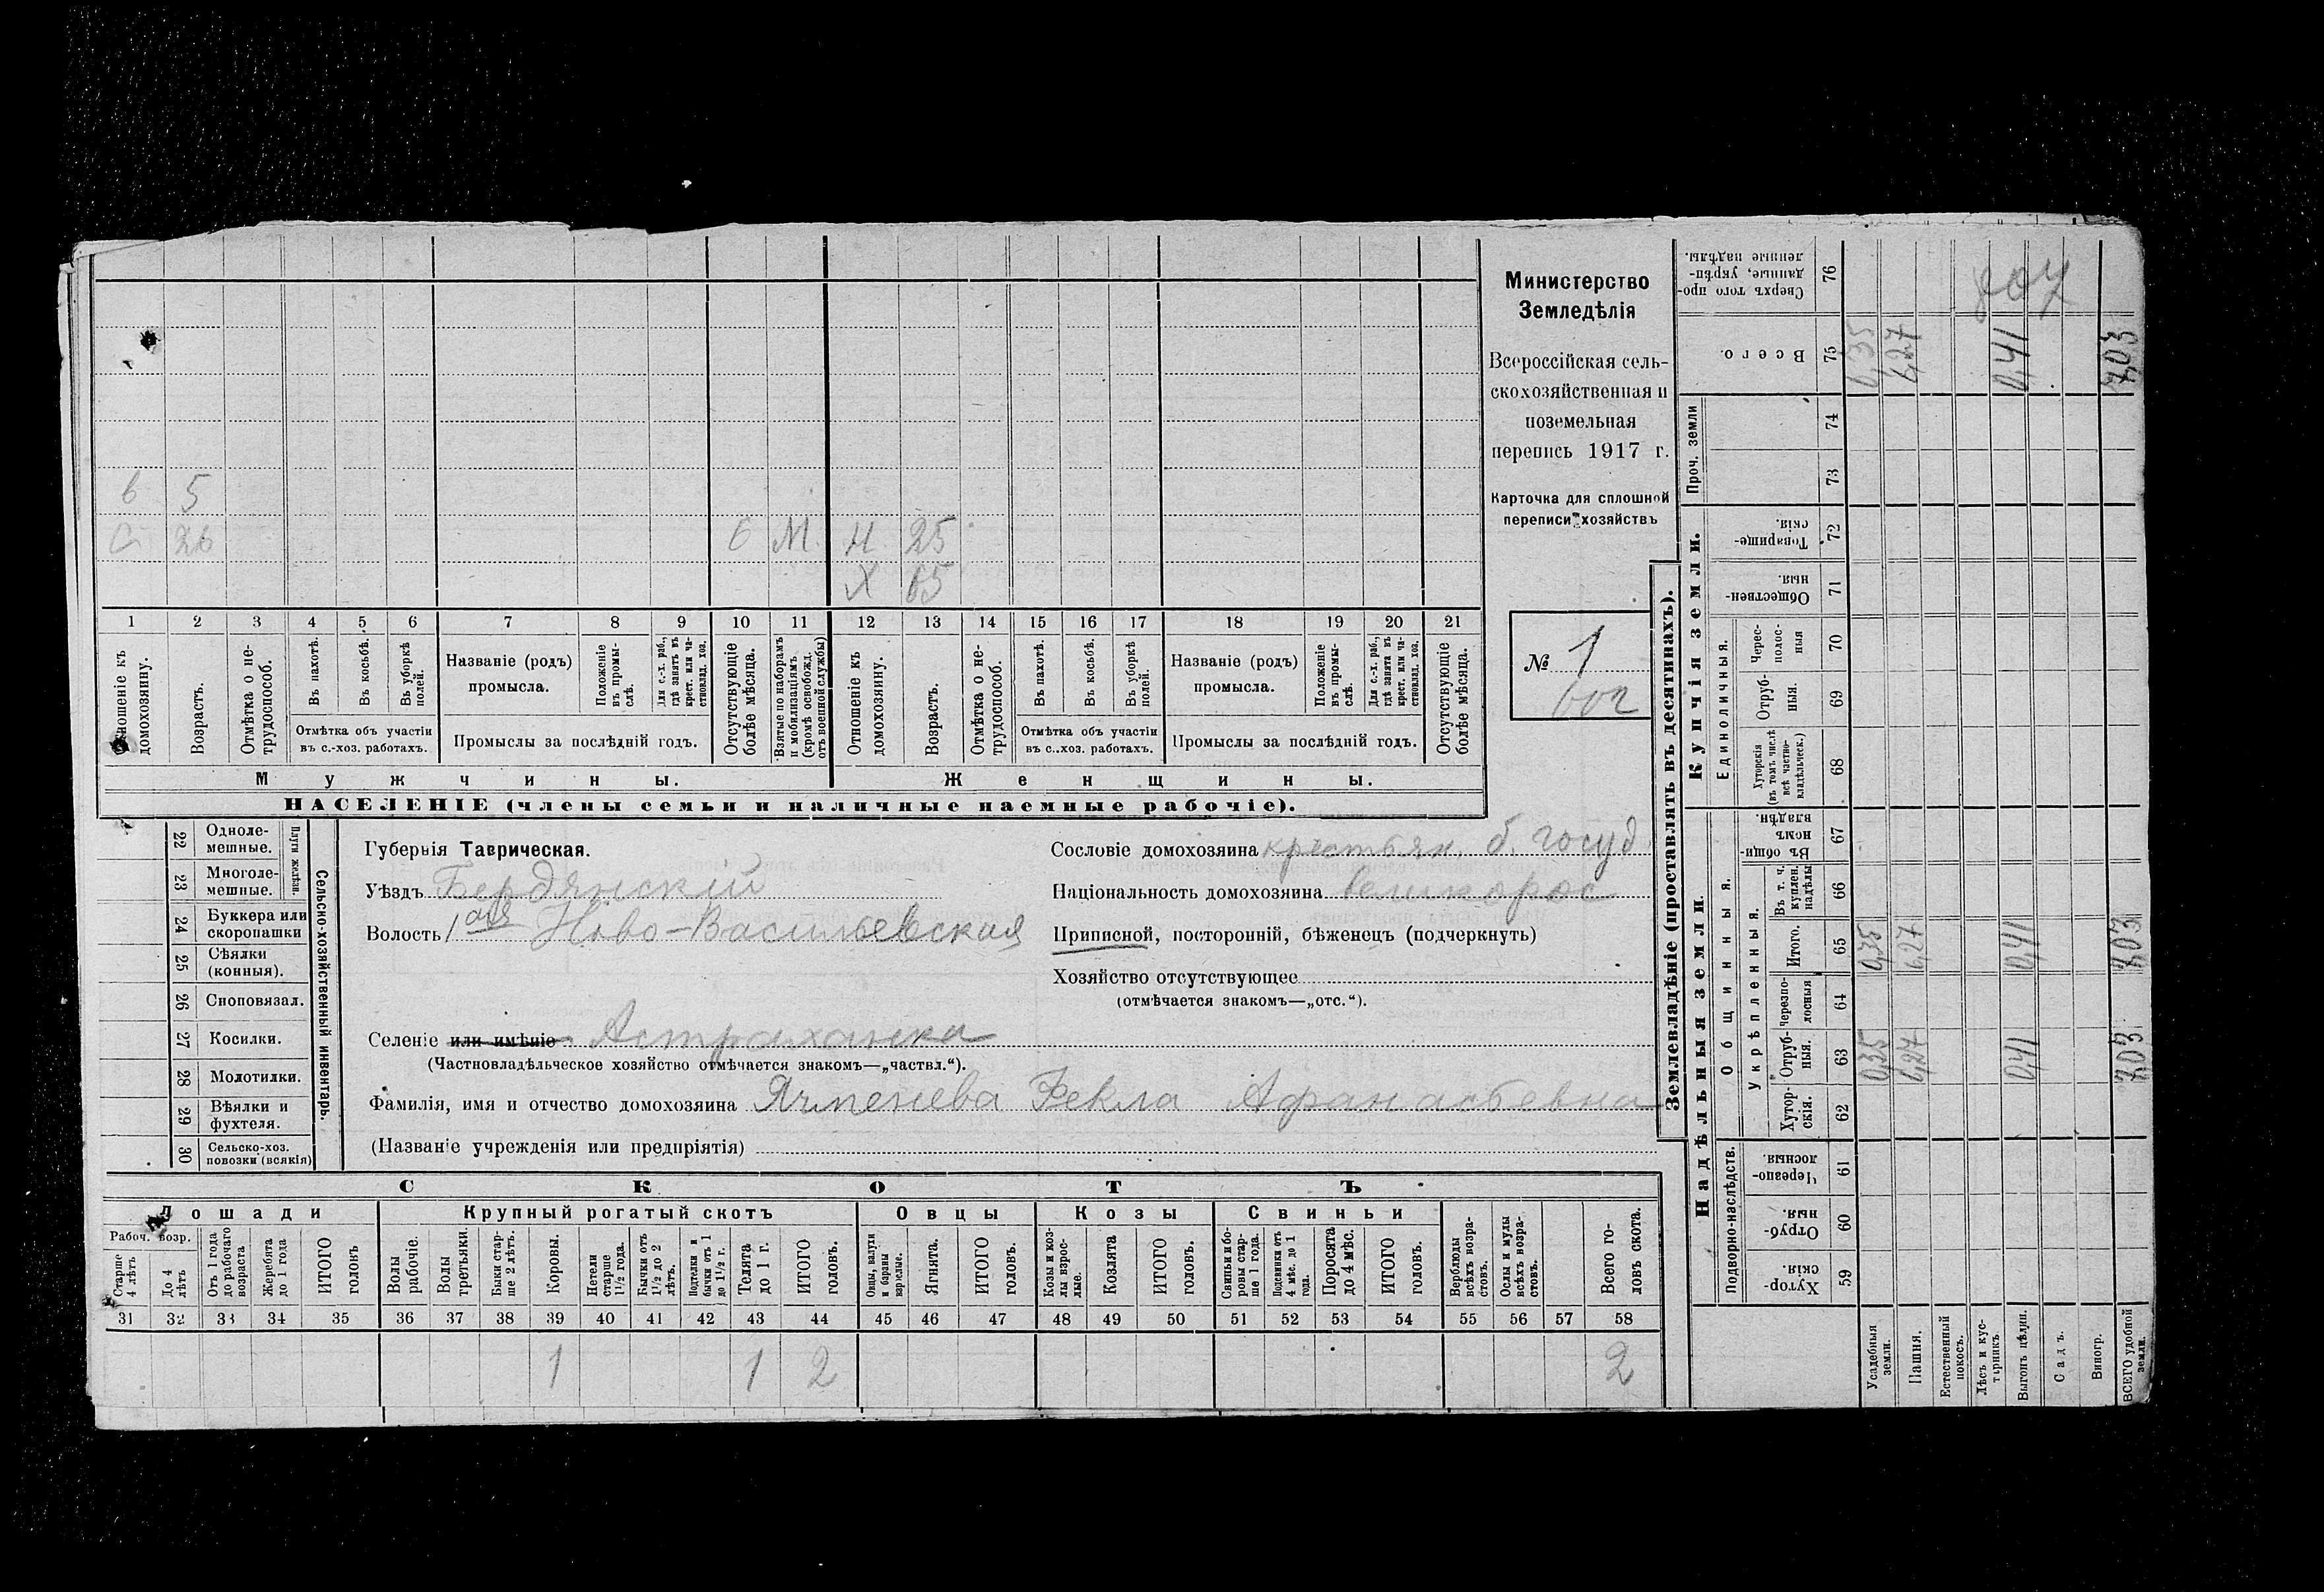 в 5
с 26 6 М. н 25
X 65
1 2 3 4 5 6 7 8 9 10 11 12 13 14 15 16 17 18 19 20 21
Отношеніе къ домохозяину.
Возрастъ.
Отмѣтка о не-трудоспособ.
Въ пахотѣ.
Въ косьбѣ.
Въ уборкѣ полей.
Отмѣтка объ участіи
въ с.-хоз. работахъ.
Названіе (родъ)
промысла.
Положеніе въ промы-слѣ.
Для с.-х. раб., гдѣ занятъ въ крест. или ча-стновлад. хоз.
Промыслы за послѣдній годъ.
Отсутствующіе болѣе мѣсяца.
Взятые по наборамъ и мобилизаціямъ (кромѣ освобожд. отъ военной службы)
Отношеніе къ домохозяину.
Возрастъ.
Отмѣтка о не-трудоспособ.
Въ пахотѣ.
Въ косьбѣ.
Въ уборкѣ полей.
Отмѣтка объ участіи
въ с.-хоз. работахъ.
Названіе (родъ)
промысла.
Положеніе въ промы-слѣ.
Для с.-х. раб., гдѣ занята въ крест. или ча-стновлад. хоз.
Промыслы за послѣдній годъ.
Отсутствующіе болѣе мѣсяца.
Мужчины. Женщины.
НАСЕЛЕНІЕ (члены семьи и наличные наемные рабочіе).
Министерство
Земледѣлія
Всероссійская сель-
скохозяйственная и
поземельная
перепись 1917 г.
Карточка для сплошной
переписи хозяйствъ
№ 1
Сельско-хозяйственный инвентарь.
Плуги желѣзн.
22 Одноле-мешные.
23 Многоле-мешные.
24 Буккера или скоропашки
25 Сѣялки (конныя).
26 Сноповязал.
27 Косилки.
28 Молотилки.
29 Вѣялки и фухтеля.
30 Сельско-хоз. повозки (всякія)
Губернія Таврическая.
Уѣздъ Бердянскій
Волость 1ая Ново-Васильевская
Селеніе или имѣніе Астраханка
(Частновладѣльческое хозяйство отмѣчается знакомъ—„частвл.“).
Фамилія, имя и отчество домохозяина Ячменева Фекла Афанасьевна
(Названіе учрежденія или предпріятія)
Сословіе домохозяина крестьян. б. госуд.
Національность домохозяина великорос
Приписной, посторонній, бѣженецъ (подчеркнуть)
Хозяйство отсутствующее
(отмѣчается знакомъ—„отс.“).
СКОТЪ
Лошади Крупный рогатый скотъ Овцы Козы Свиньи
Рабоч. возр.
Старше 4 лѣтъ
До 4 лѣтъ
Отъ 1 года до рабочаго возраста
Жеребята до 1 года
ИТОГО головъ
Волы рабочіе.
Волы третьяки.
Быки стар-ше 2 лѣтъ.
Коровы.
Нетели старше 1½ года.
Бычки отъ 1½ до 2 лѣтъ.
Подтелки и бычки отъ 1 до 1½ г.
Телята до 1 г.
ИТОГО головъ.
Овцы, валухи и бараны взрослые.
Ягнята.
ИТОГО головъ.
Козы и коз-лы взрос-лые.
Козлята
ИТОГО головъ.
Свиньи и бо-ровы стар-ше 1 года.
Подсвинки отъ 4 мѣс. до 1 года.
Поросята до 4 мѣс.
ИТОГО головъ.
Верблюды всѣхъ возра-стовъ.
Ослы и мулы всѣхъ возра-стовъ.
Всего го-ловъ скота.
31 32 33 34 35 36 37 38 39 40 41 42 43 44 45 46 47 48 49 50 51 52 53 54 55 56 57 58
1 1 2 2
Землевладѣніе (проставлять въ десятинахъ).
Надѣльныя земли.
Купчія земли.
Проч. земли
Подворно-наслѣдств.
Общинныя.
Укрѣпленныя.
Единоличныя.
Хутор-скія. 59
Отруб-ныя. 60
Черезпо-лосныя. 61
Хутор-скія. 62
Отруб-ныя. 63
Черезпо-лосныя 64
Итого. 65
Въ т. ч. куплен. надѣлы 66
Въ общин-номъ владѣн. 67
Хуторскія (въ томъ числѣ всѣ частно-владѣльческ.) 68
Отруб-ныя. 69
Черес-полос-ныя 70
Обществен-ныя. 71
Товарище-скія. 72
73
74
Всего. 75
Сверхъ того про-данные, укрѣп-ленные надѣлы. 76
Усадебныя земли. 0,35 0,35 0,35
Пашня. 6,27 6,27 6,27
Естественный покосъ.
Лѣсъ и кус-тарникъ
Выгонъ цѣлин. 0,41 0,41 0,41
Садъ.
Виногр.
ВСЕГО удобной земли. 7,03 7,03 7,03